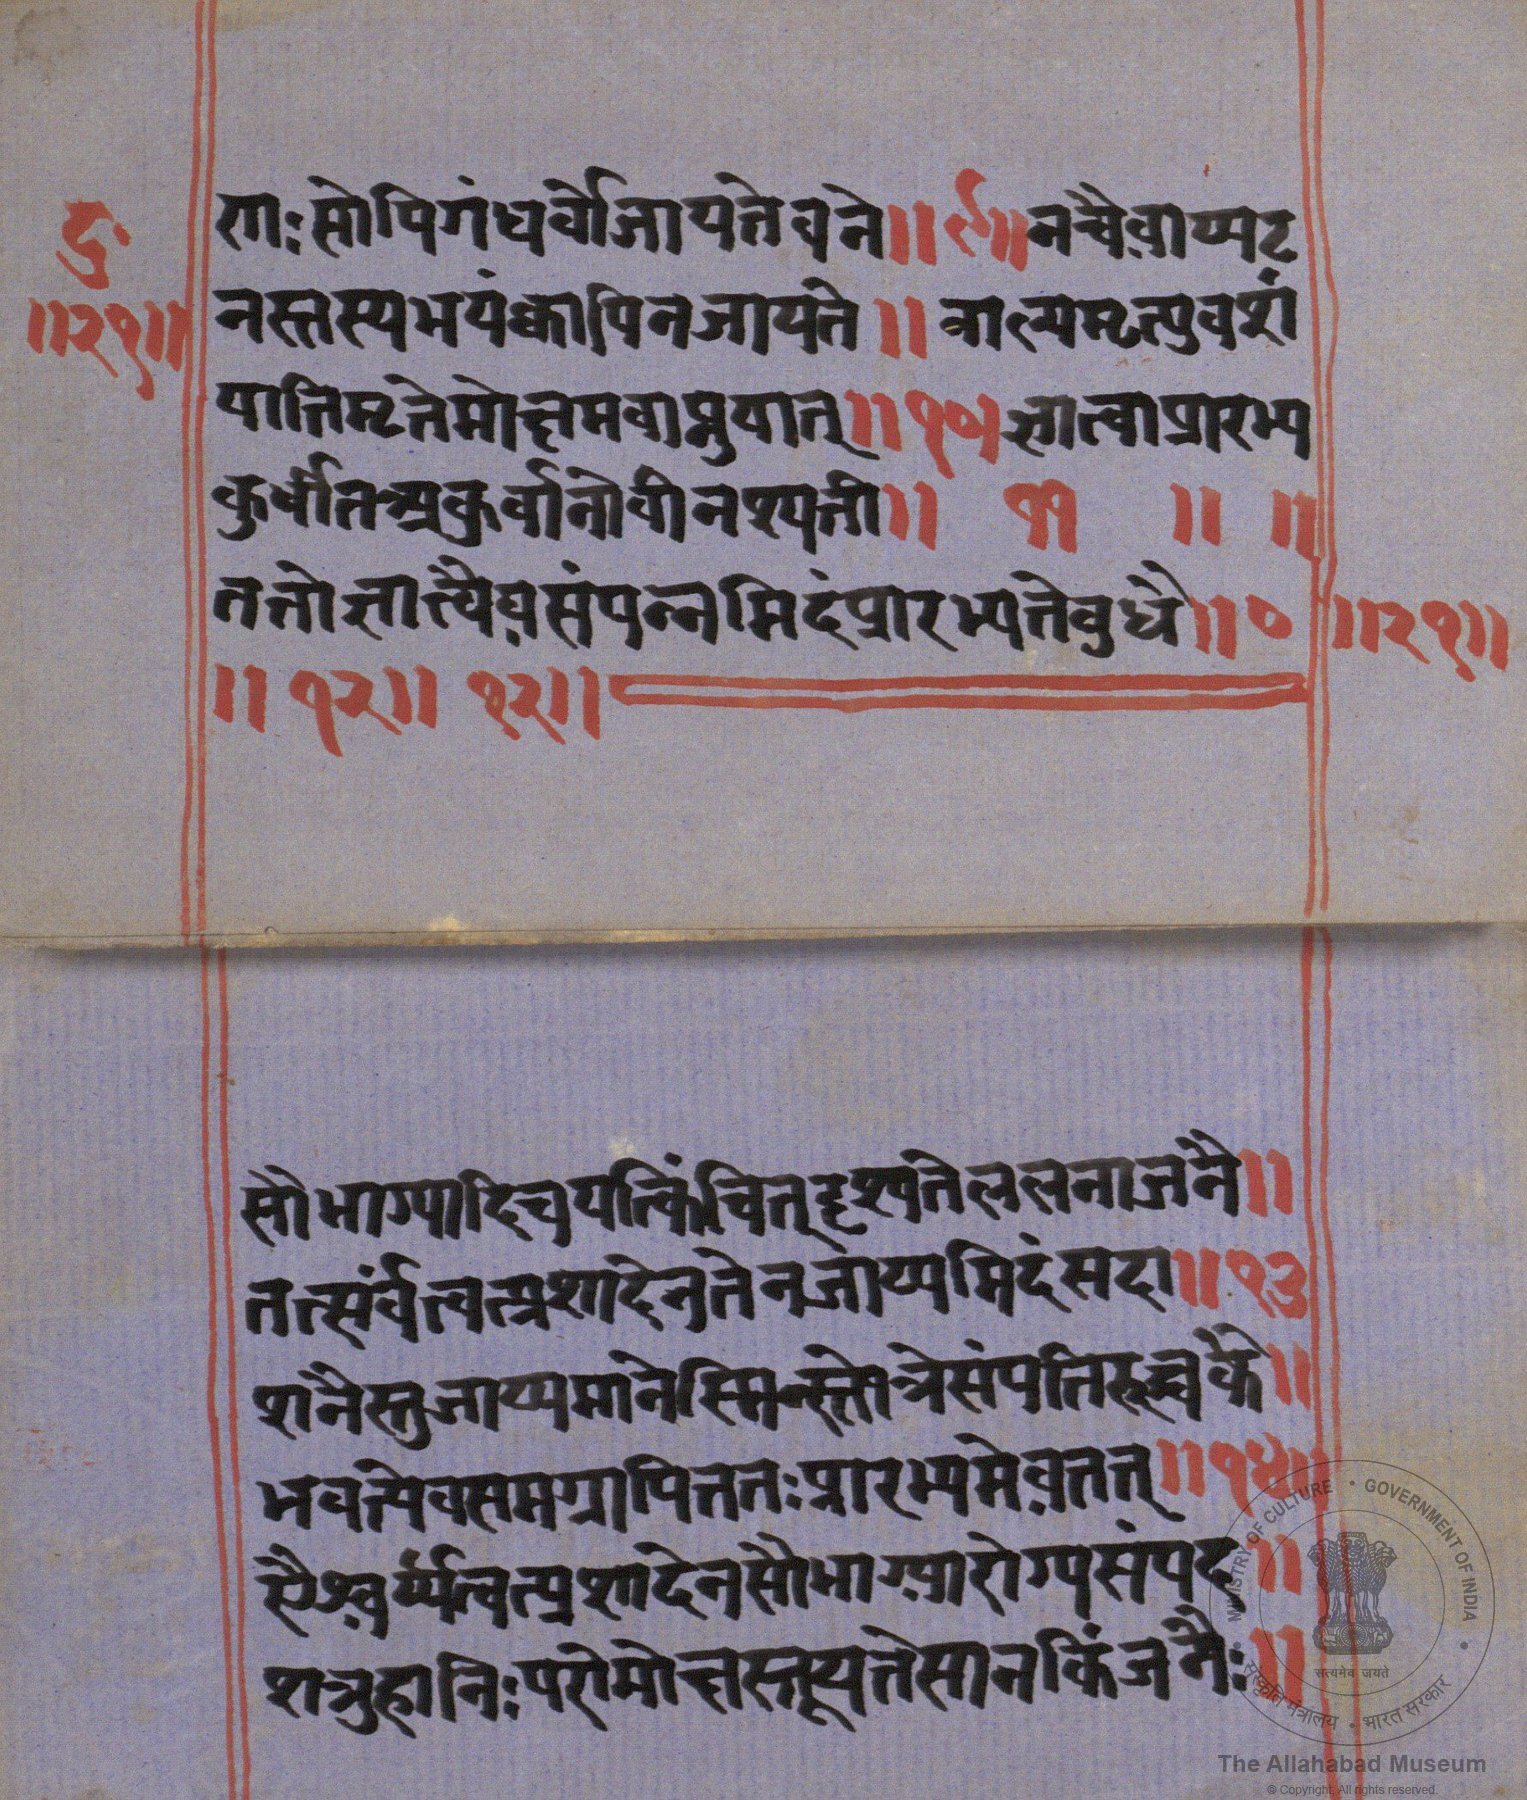 दु
॥२१॥
णाः सोपि गंधर्वो जायते वने ॥ ९ ॥ न चैवाप्यट
नस्तस्य भयं क्कापि न जायते ॥ नाल्पमृत्युवशं
याति मृते मोक्षमवाप्नुयात् ॥ १० ॥ ज्ञात्वा प्रारभ्य
कुर्वीत अकुर्वानो वीनश्यती ॥ ११ ॥ ॥
ततो ज्ञात्वैव संपन्नमिदं प्रारभ्यते बुधै ॥ ०
॥२१॥
॥ १२ ॥ १२ ॥
सौभाग्यादि च यत्किंचित् दृश्यते ललनाजनै ॥
तत्सर्वं त्वत्प्रशादेन तेन जाप्यमिदं सदा ॥ १३
शनैस्तु जाप्यमानेस्मिन्स्तोत्रे संपतिरुच्चकै ॥
भवत्येव समग्रापि ततः प्रारभ्यमेव तत् ॥ १४ ॥
एैश्वर्य्य त्वत्प्रशादेन सौभाग्यारोग्यसंपद ॥
शत्रुहानिः परो मोक्ष स्तूयते सा न किं जनैः ॥
MINISTRY OF CULTURE • GOVERNMENT OF INDIA
सत्यमेव जयते
संस्कृति मंत्रालय • भारत सरकार
The Allahabad Museum
© Copyright. All rights reserved.